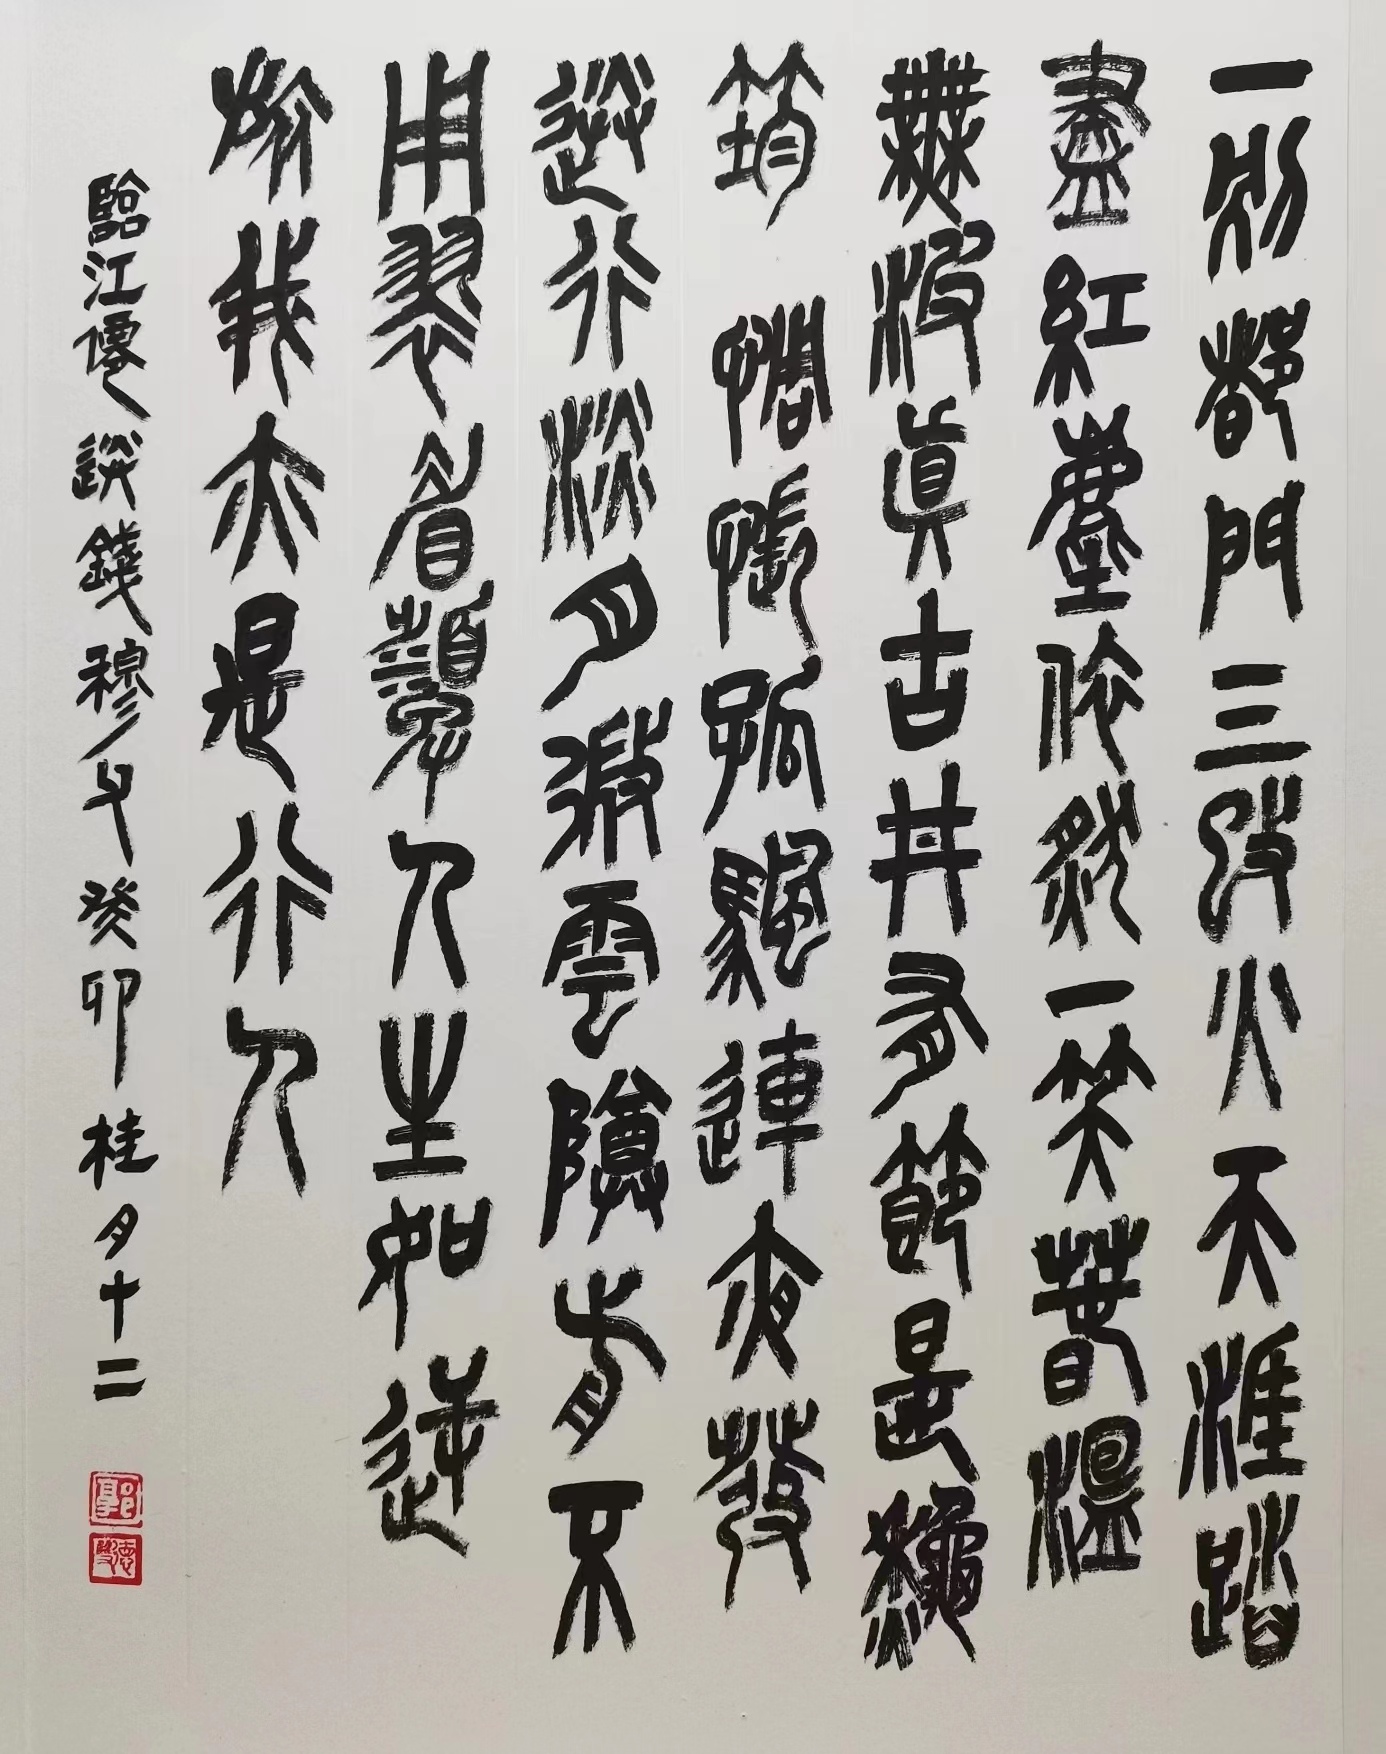 一別都門三改火天涯踏
盡紅塵依然一笑春溫
無波真古井有節是秋
筠 惆悵孤颿連夜發
送行淡月微雲尊前不
用翠眉顰人生如逆
旅我亦是行人
臨江僊 送錢穆父 癸卯桂月十二
郭